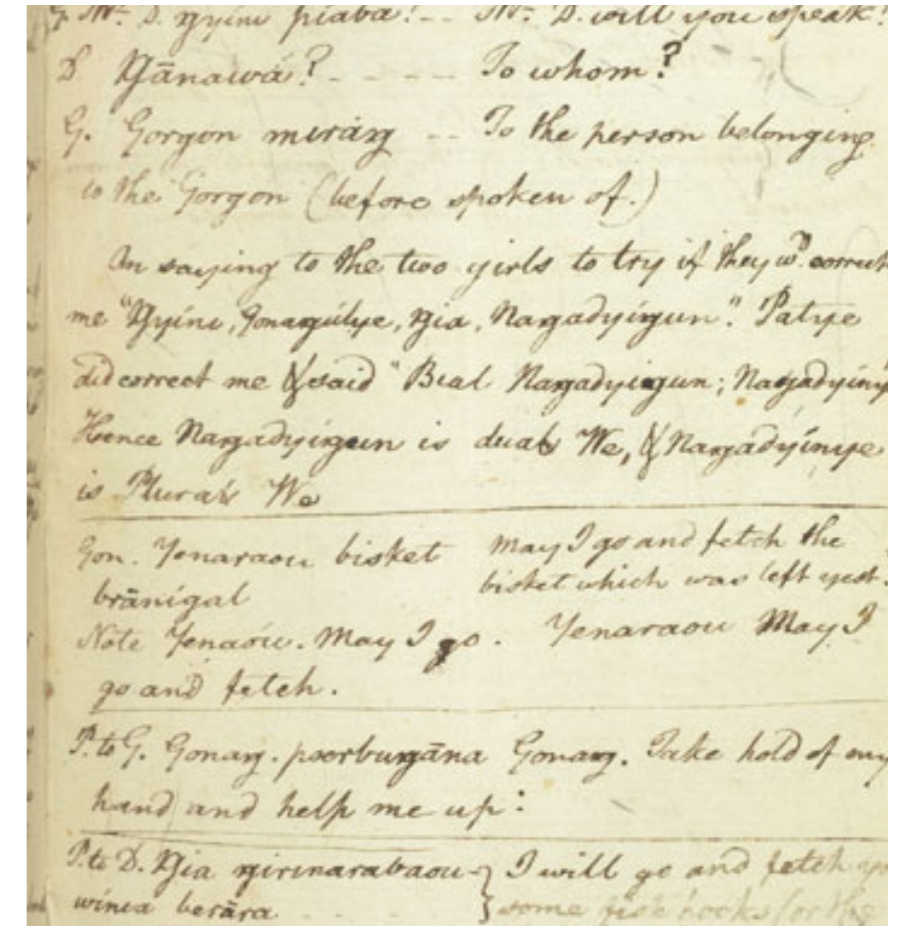 G. Mr. D. ŋyini piaba? -- Mr. D. will you speak?
D Ŋānawá? - - - - - To whom?
G. Gorgon miráŋ -- To the person belonging
to the Gorgon (before spoken of.)
On saying to the two girls to try if they wd. correct
me "Ŋyíni, Gonagúlye, ŋia, Naŋadyíŋun". Patye
did correct me & said "Bial Naŋadyiŋun; Naŋadyíny
Hence Naŋadyíŋun is dual We, & Naŋadyínye
is Plural We
Gon. Yenaraou bisket May I go and fetch the
brānígal bisket which was left yest.
Note Yenaóu. May I go. Yenaraou May I
go and fetch.
P. to G. Gonaŋ. poorbuŋāna Gonaŋ. Take hold of my
hand and help me up:
P. to D. Ŋia ŋirinarabaou- } I will go and fetch
winia berāra - - - } some fish hooks for the